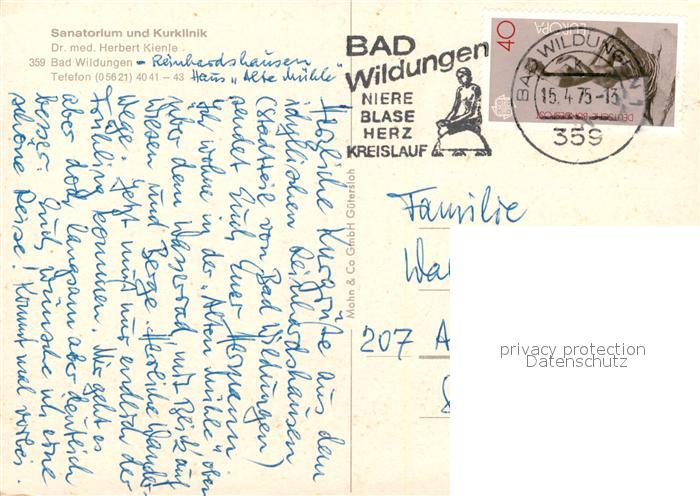 Sanatorium und Kurklinik
Dr. med. Herbert Kienle
359 Bad Wildungen - Reinhardshausen
Telefon (05621) 4041 - 43 Haus „Alte Mühle"
Herzliche Kurgrüße aus dem
idyllischen Reinhardshausen
(Stadtteil von Bad Wildungen)
sendet Euch Euer Hermann
Ich wohne in der „Alten Mühle" oben
über dem Wasserrad, mit Blick auf
Wiesen und Berge. Herrliche Wander-
wege. Jetzt muß nur endlich der
Frühling kommen. Mir geht es
aber doch langsam aber deutlich
besser. Euch wünsche ich eine
schöne Reise! Kommt mal vorbei.
Mohn & Co GmbH Gütersloh
BAD
Wildungen
NIERE
BLASE
HERZ
KREISLAUF
40
EUROPA
DEUTSCHE BUNDESPOST
BAD WILDUNGEN 1
15.4.75-13
359
Familie
207 A
privacy protection
Datenschutz